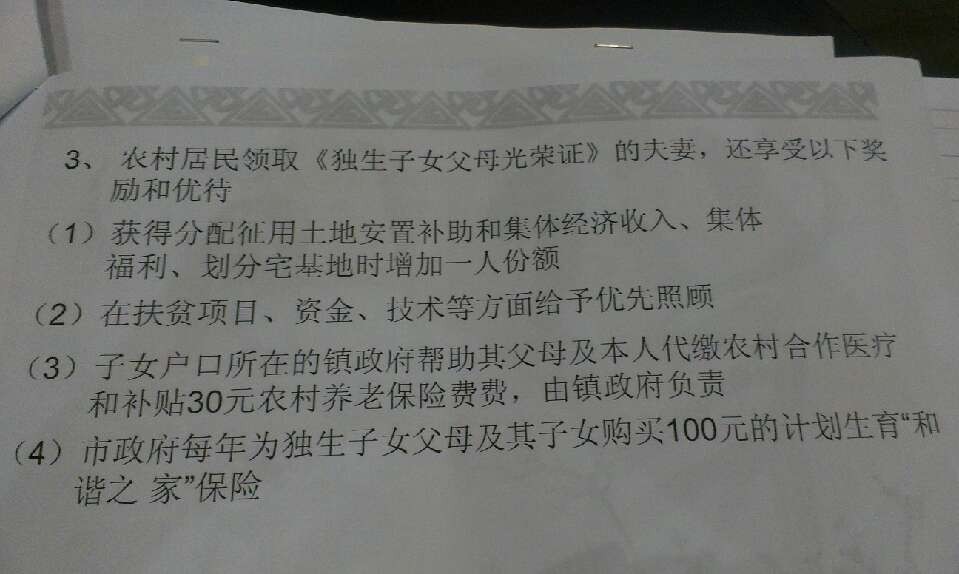 3、 农村居民领取《独生子女父母光荣证》的夫妻，还享受以下奖
励和优待
（1）获得分配征用土地安置补助和集体经济收入、集体
福利、划分宅基地时增加一人份额
（2）在扶贫项目、资金、技术等方面给予优先照顾
（3）子女户口所在的镇政府帮助其父母及本人代缴农村合作医疗
和补贴30元农村养老保险费费，由镇政府负责
（4）市政府每年为独生子女父母及其子女购买100元的计划生育“和
谐之 家”保险